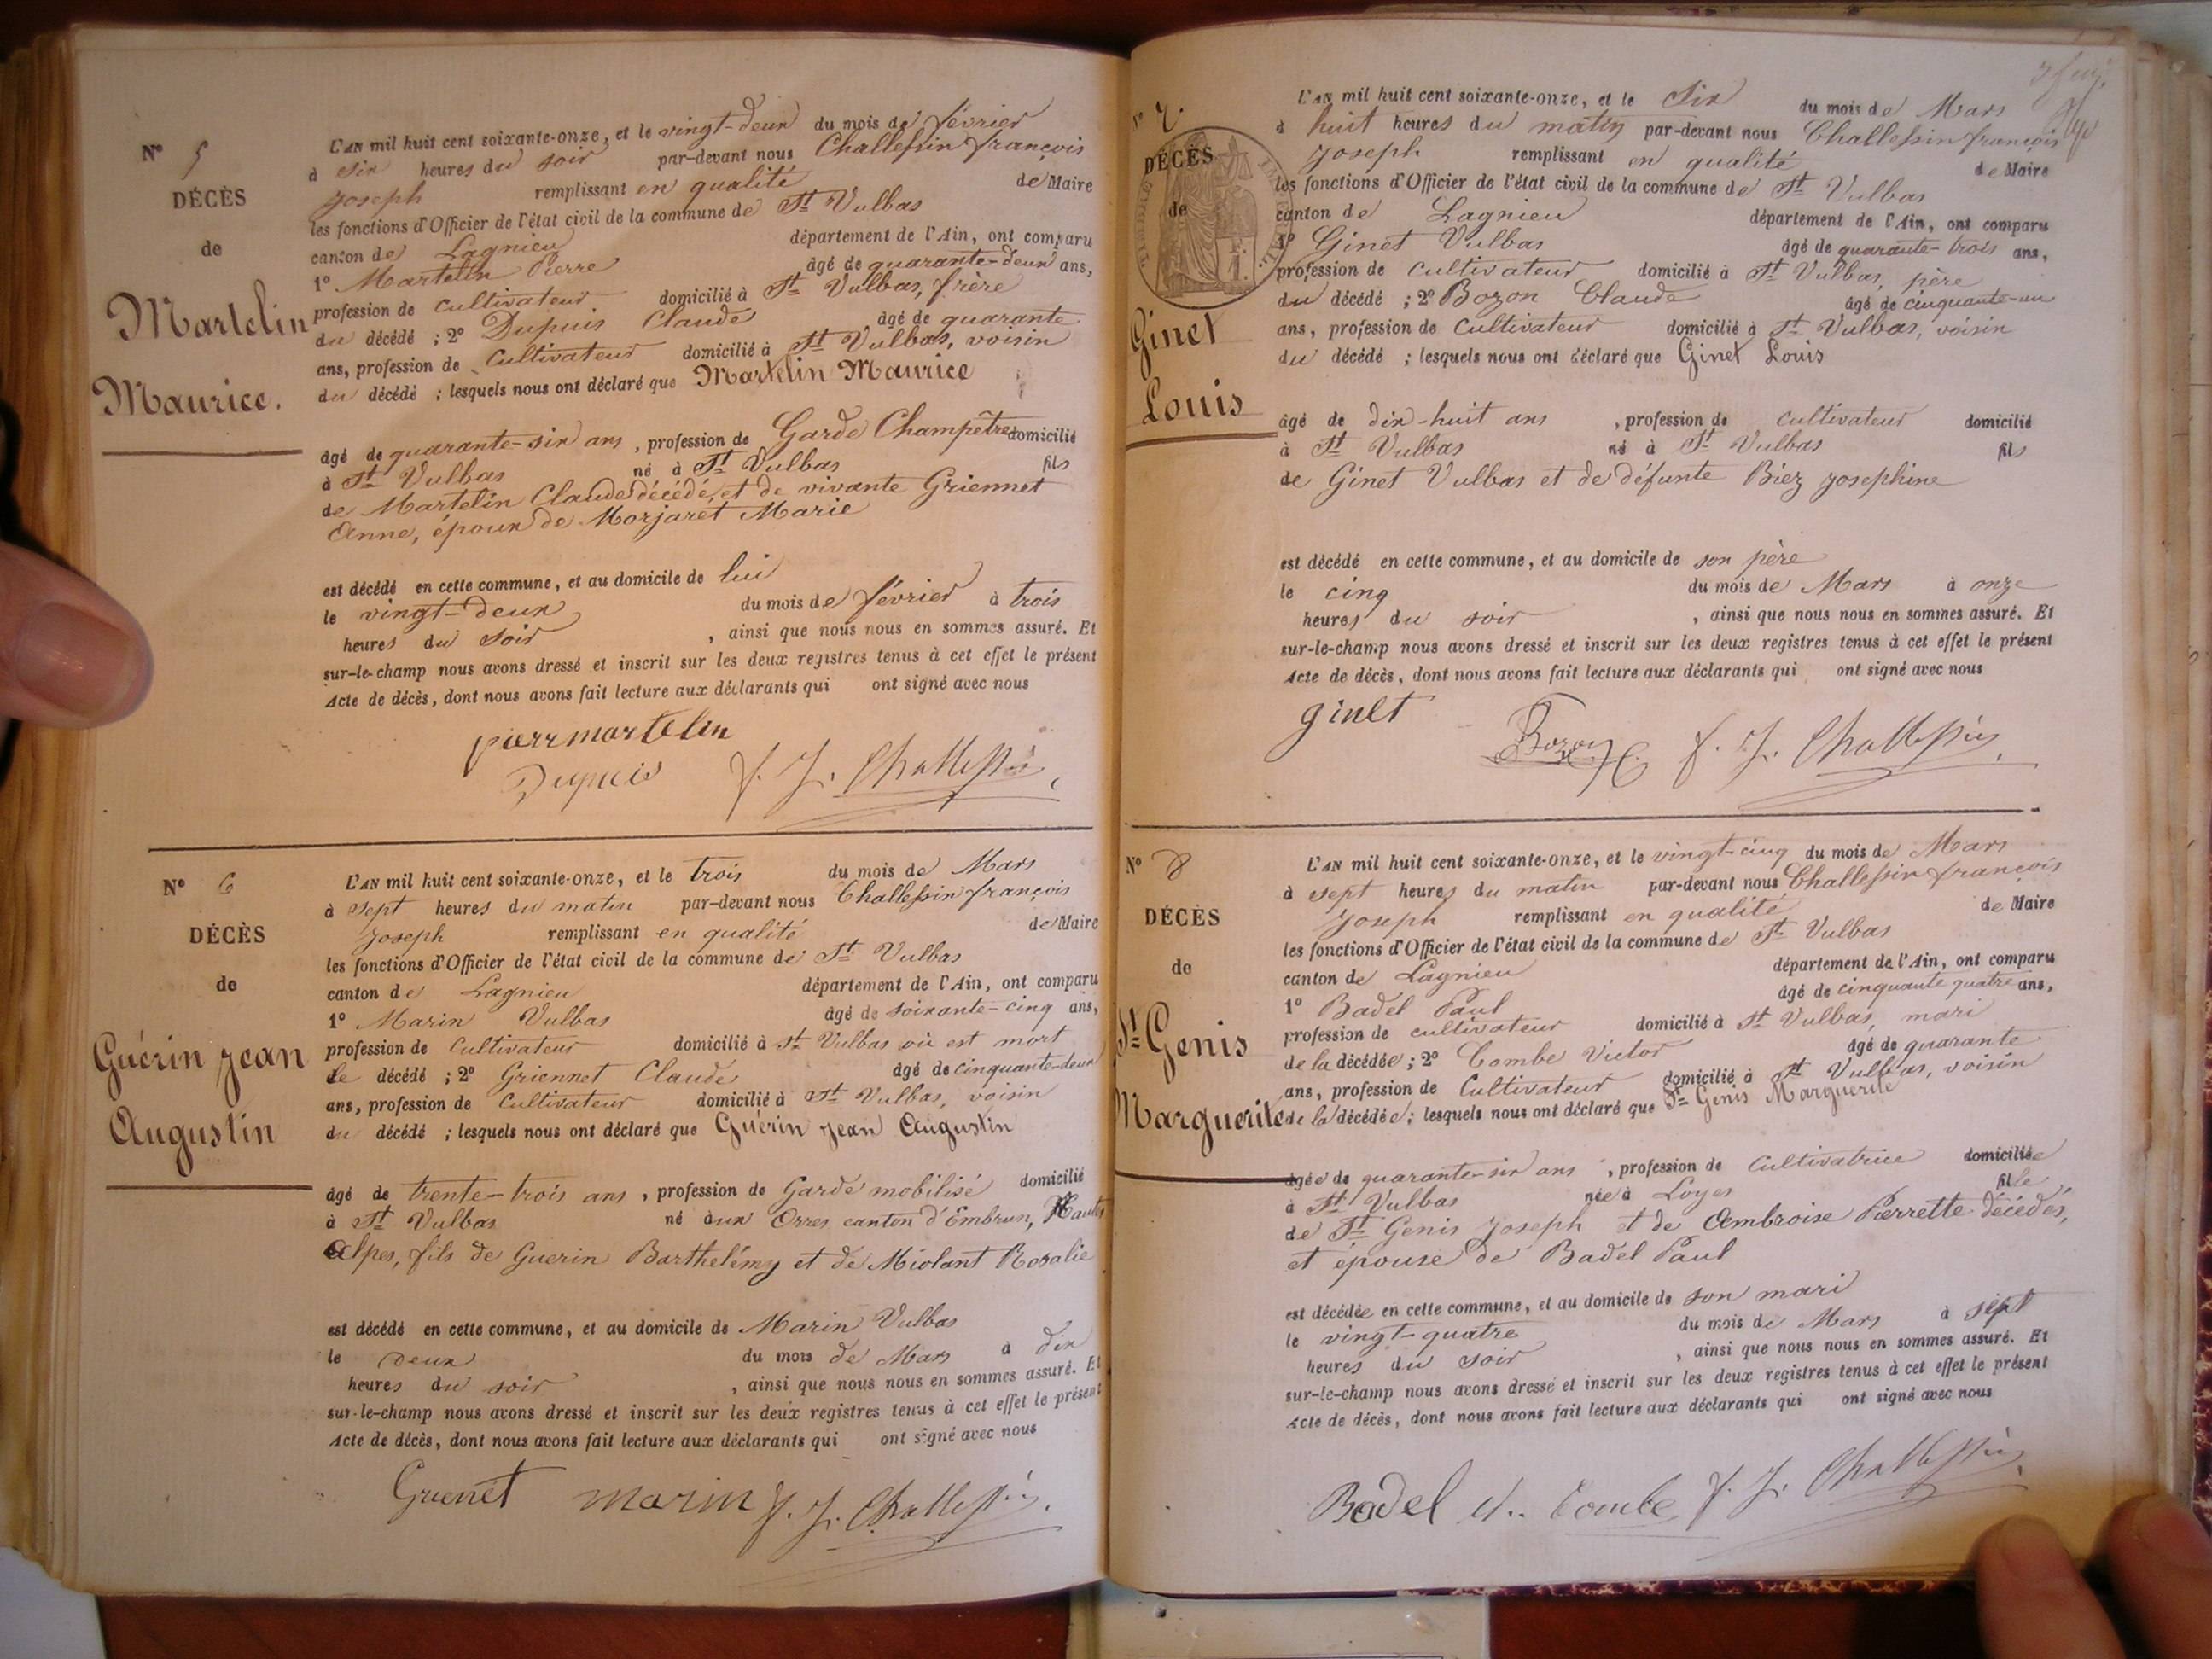 N° 5
DÉCÈS
de
Martelin
Maurice.
L'AN mil huit cent soixante-onze, et le vingt-deux du mois de février
à six heures du soir par-devant nous Challessin françois
Joseph remplissant en qualité de Maire
les fonctions d'Officier de l'état civil de la commune de St Vulbas
canton de Lagnieu département de l'Ain, ont comparu
1° Martelin Pierre âgé de quarante-deux ans,
profession de cultivateur domicilié à St Vulbas, frère
du décédé ; 2° Dupuis Claude âgé de quarante
ans, profession de Cultivateur domicilié à St Vulbas, voisin
du décédé ; lesquels nous ont déclaré que Martelin Maurice
âgé de quarante-six ans, profession de Garde Champêtre domicilié
à St Vulbas né à St Vulbas fils
de Martelin Claude décédé, et de vivante Griennet
Anne, époux de Morjaret Marie
est décédé en cette commune, et au domicile de lui
le vingt-deux du mois de février à trois
heures du soir, ainsi que nous nous en sommes assuré. Et
sur-le-champ nous avons dressé et inscrit sur les deux registres tenus à cet effet le présent
Acte de décès, dont nous avons fait lecture aux déclarants qui ont signé avec nous
pierr martelin
Dupuis f. J. Challessin
N° 6
DÉCÈS
de
Guérin Jean
Augustin
L'AN mil huit cent soixante-onze, et le trois du mois de Mars
à sept heures du matin par-devant nous Challessin françois
Joseph remplissant en qualité de Maire
les fonctions d'Officier de l'état civil de la commune de St Vulbas
canton de Lagnieu département de l'Ain, ont comparu
1° Marin Vulbas âgé de soixante-cinq ans,
profession de Cultivateur domicilié à St Vulbas où est mort
le décédé ; 2° Griennet Claude âgé de cinquante-deux
ans, profession de Cultivateur domicilié à St Vulbas, voisin
du décédé ; lesquels nous ont déclaré que Guérin Jean Augustin
âgé de trente-trois ans, profession de Garde mobilisé domicilié
à St Vulbas né aux Orres canton d'Embrun, Hautes
Alpes, fils de Guerin Barthélémy et de Miolant Rosalie
est décédé en cette commune, et au domicile de Marin Vulbas
le deux du mois de Mars à dix
heures du soir, ainsi que nous nous en sommes assuré. Et
sur-le-champ nous avons dressé et inscrit sur les deux registres tenus à cet effet le présent
Acte de décès, dont nous avons fait lecture aux déclarants qui ont signé avec nous
Grienet marin f. J. Challessin
N° 7
DÉCÈS
de
Ginet
Louis
L'AN mil huit cent soixante-onze, et le Six du mois de Mars
à huit heures du matin par-devant nous Challessin françois
Joseph remplissant en qualité de Maire
les fonctions d'Officier de l'état civil de la commune de St Vulbas
canton de Lagnieu département de l'Ain, ont comparu
1° Ginet Vulbas âgé de quarante-trois ans,
profession de cultivateur domicilié à St Vulbas, père
du décédé ; 2° Bozon Claude âgé de cinquante-un
ans, profession de Cultivateur domicilié à St Vulbas, voisin
du décédé ; lesquels nous ont déclaré que Ginet Louis
âgé de dix-huit ans, profession de cultivateur domicilié
à St Vulbas né à St Vulbas fils
de Ginet Vulbas et de défunte Biez Josephine
est décédé en cette commune, et au domicile de son père
le cinq du mois de Mars à onze
heures du soir, ainsi que nous nous en sommes assuré. Et
sur-le-champ nous avons dressé et inscrit sur les deux registres tenus à cet effet le présent
Acte de décès, dont nous avons fait lecture aux déclarants qui ont signé avec nous
ginet Bozon C. f. J. Challessin
N° 8
DÉCÈS
de
St Genis
Marguerite
L'AN mil huit cent soixante-onze, et le vingt-cinq du mois de Mars
à sept heures du matin par-devant nous Challessin françois
Joseph remplissant en qualité de Maire
les fonctions d'Officier de l'état civil de la commune de St Vulbas
canton de Lagnieu département de l'Ain, ont comparu
1° Badel Paul âgé de cinquante quatre ans,
profession de cultivateur domicilié à St Vulbas, mari
de la décédée ; 2° Combe Victor âgé de quarante
ans, profession de Cultivateur domicilié à St Vulbas, voisin
de la décédée ; lesquels nous ont déclaré que St Genis Marguerite
agée de quarante-six ans, profession de Cultivatrice domiciliée
à St Vulbas née à Loyes fille
de St Genis Joseph et de Ambroise Pierrette décédés,
et épouse de Badel Paul
est décédée en cette commune, et au domicile de son mari
le vingt-quatre du mois de Mars à sept
heures du soir, ainsi que nous nous en sommes assuré. Et
sur-le-champ nous avons dressé et inscrit sur les deux registres tenus à cet effet le présent
Acte de décès, dont nous avons fait lecture aux déclarants qui ont signé avec nous
Badel Combe f. J. Challessin